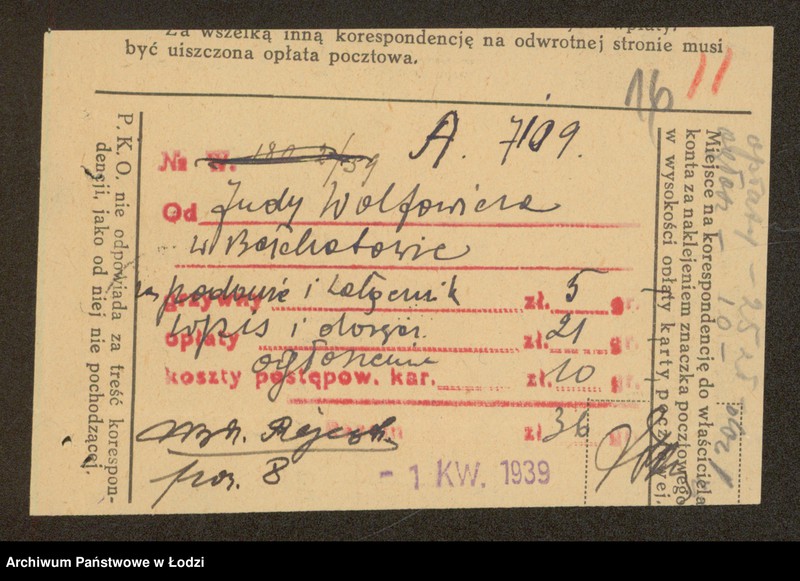 Za wszelką inną korespondencję na odwrotnej stronie musi
być uiszczona opłata pocztowa.
16 11
P. K. O. nie odpowiada za treść korespon-
dencji, jako od niej nie pochodzącej.
A. 7/39.
№ W. 180 2/39
Od Judy Wolfowicza
w Bełchatowie
na podanie i załącznik
grzywny zł. 5 gr.
wpis i doręcz.
opłaty zł. 21 gr.
ogłoszenie
koszty postępow. kar. zł. 10 gr.
Razem zł 36 gr
poz. 8
- 1 KW. 1939
Miejsce na korespondencję do właściciela
konta za naklejeniem znaczka pocztowego
w wysokości opłaty karty pocztowej.
opłaty - 25
10 -
Archiwum Państwowe w Łodzi